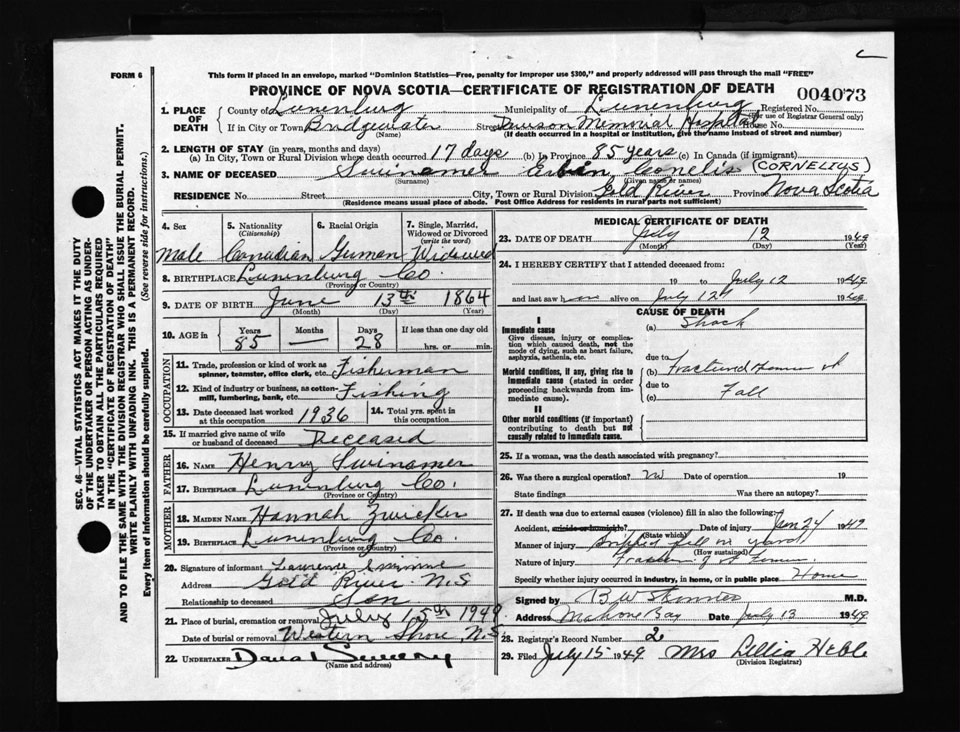 FORM 6
This form if placed in an envelope, marked "Dominion Statistics—Free, penalty for improper use $300," and properly addressed will pass through the mail "FREE"
PROVINCE OF NOVA SCOTIA—CERTIFICATE OF REGISTRATION OF DEATH 004073
1. PLACE OF DEATH County of Lunenburg Municipality of Lunenburg Registered No. (For use of Registrar General only)
If in City or Town Bridgewater (Name) Street Dawson Memorial Hospital House No.
(If death occurred in a hospital or institution, give the name instead of street and number)
2. LENGTH OF STAY (in years, months and days)
(a) In City, Town or Rural Division where death occurred 17 days (b) In Province 85 years (c) In Canada (if immigrant)
3. NAME OF DECEASED Swinamer (Surname) (Given name or names) (CORNELIUS)
RESIDENCE No. Street City, Town or Rural Division Gold River Province Nova Scotia
(Residence means usual place of abode. Post Office Address for residents in rural parts not sufficient)
SEC. 46—VITAL STATISTICS ACT MAKES IT THE DUTY
OF THE UNDERTAKER OR PERSON ACTING AS UNDER-
TAKER TO OBTAIN ALL THE PARTICULARS REQUIRED
IN THE "CERTIFICATE OF REGISTRATION OF DEATH"
AND TO FILE THE SAME WITH THE DIVISION REGISTRAR WHO SHALL ISSUE THE BURIAL PERMIT.
WRITE PLAINLY WITH UNFADING INK. THIS IS A PERMANENT RECORD.
Every item of Information should be carefully supplied. (See reverse side for instructions.)
4. Sex 5. Nationality (Citizenship) 6. Racial Origin 7. Single, Married, Widowed or Divorced (write the word)
Male Canadian German Widowed
8. BIRTHPLACE Lunenburg Co.
(Province or Country)
9. DATE OF BIRTH June 13th 1864
(Month) (Day) (Year)
10. AGE in Years Months Days If less than one day old
85 — 28 hrs. or min.
OCCUPATION
11. Trade, profession or kind of work as spinner, teamster, office clerk, etc. Fisherman
12. Kind of industry or business, as cotton-mill, lumbering, bank, etc. Fishing
13. Date deceased last worked at this occupation 1936 14. Total yrs. spent in this occupation
15. If married give name of wife or husband of deceased Deceased
FATHER
16. NAME Henry Swinamer
17. BIRTHPLACE Lunenburg Co.
(Province or Country)
MOTHER
18. MAIDEN NAME Hannah Zwicker
19. BIRTHPLACE Lunenburg Co.
(Province or Country)
20. Signature of informant Lawrence
Address Gold River N.S
Relationship to deceased Son
21. Place of burial, cremation or removal July 15th 1949
Date of burial or removal Western Shore, N.S
22. UNDERTAKER
(Name and address)
MEDICAL CERTIFICATE OF DEATH
23. DATE OF DEATH July 12 1949
(Month) (Day) (Year)
24. I HEREBY CERTIFY that I attended deceased from:
19 to July 12 1949
and last saw h alive on July 12 1949
CAUSE OF DEATH
I
Immediate cause (a) Shock
Give disease, injury or complication which caused death, not the mode of dying, such as heart failure, asphyxia, asthenia, etc.
due to
Morbid conditions, if any, giving rise to immediate cause (stated in order proceeding backwards from immediate cause). (b) Fractured
due to
(c) Fall
II
Other morbid conditions (if important) contributing to death but not causally related to immediate cause.
25. If a woman, was the death associated with pregnancy?
26. Was there a surgical operation? Date of operation 19
State findings Was there an autopsy?
27. If death was due to external causes (violence) fill in also the following:
Accident, suicide or homicide? (State which) Date of injury 24 1949
Manner of injury fell in yard
(How sustained)
Nature of injury
Specify whether injury occurred in industry, in home, or in public place Home
Signed by B W M.D.
Address Mahone Bay Date July 13 1949
28. Registrar's Record Number 2
29. Filed July 15 1949 Mrs Lellia Heble
(Division Registrar)